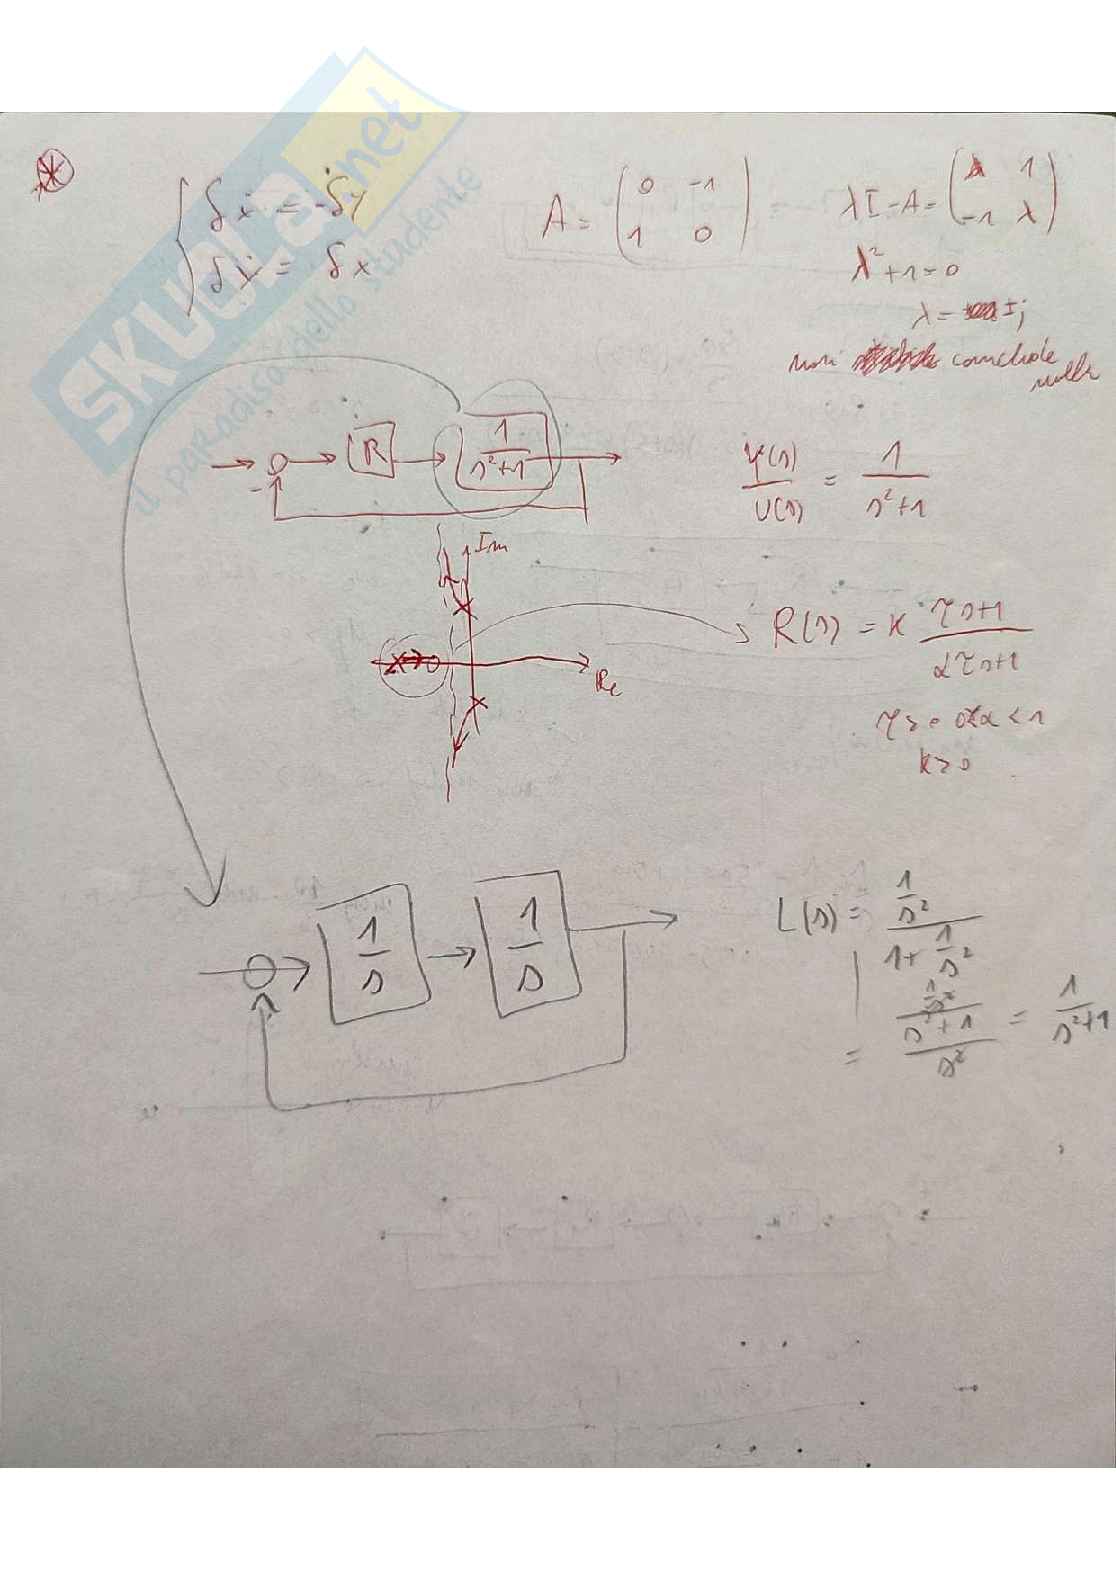 SKUOLA.net
il paradiso dello studente
δẋ = -δy
δẏ = δx
A = (0 -1
1 0)
λI - A = (λ 1
-1 λ)
λ² + 1 = 0
λ = ± j
non conclude nulla
R
1/(s²+1)
-1
Y(s)/U(s) = 1/(s²+1)
Im
Re
R(s) = K (τs+1)/(ατs+1)
τ > 0 0<α<1
K>0
1/s
1/s
L(s) = (1/s²)/(1+1/s²)
= (1/s²)/((s²+1)/s²) = 1/(s²+1)